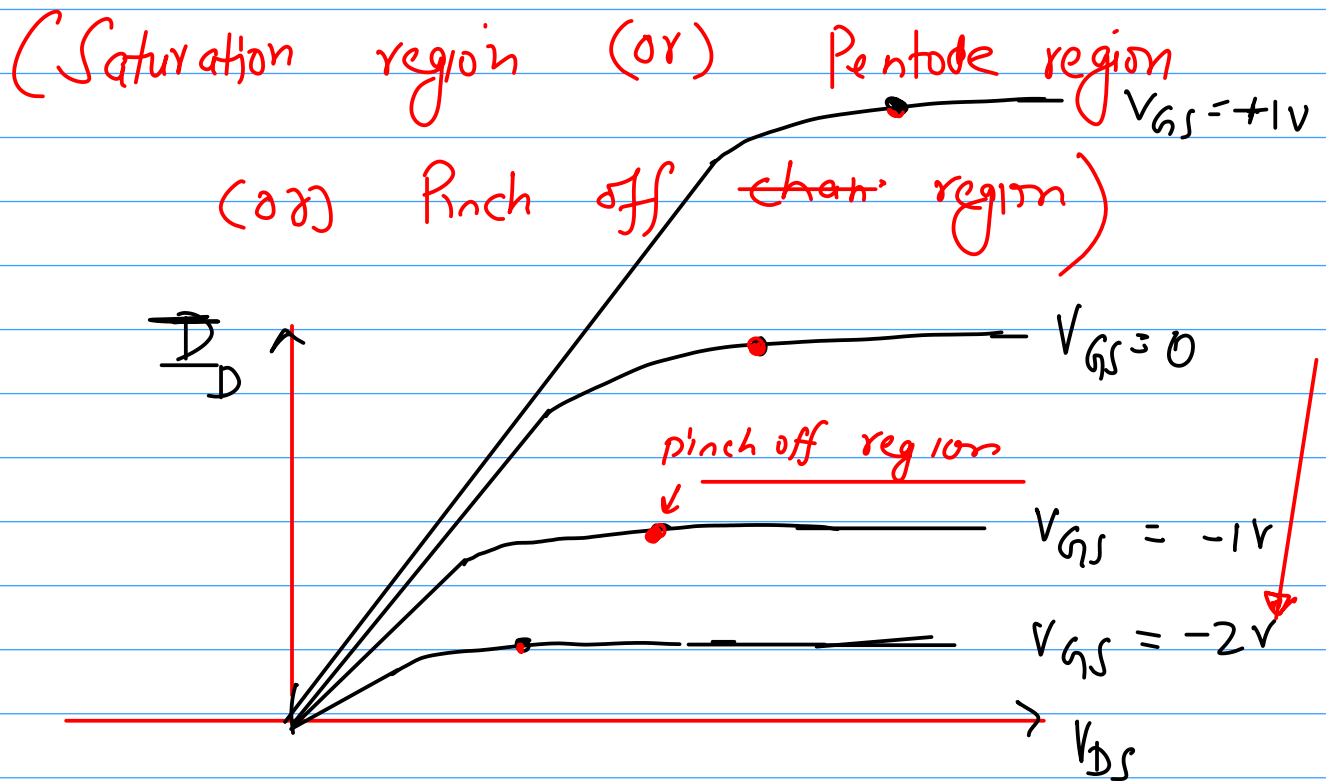 (Saturation region (or) Pentode region
V_GS = +1V
(or) Pinch off chan region)
I_D
V_GS = 0
pinch off region
V_GS = -1V
V_GS = -2V
V_DS